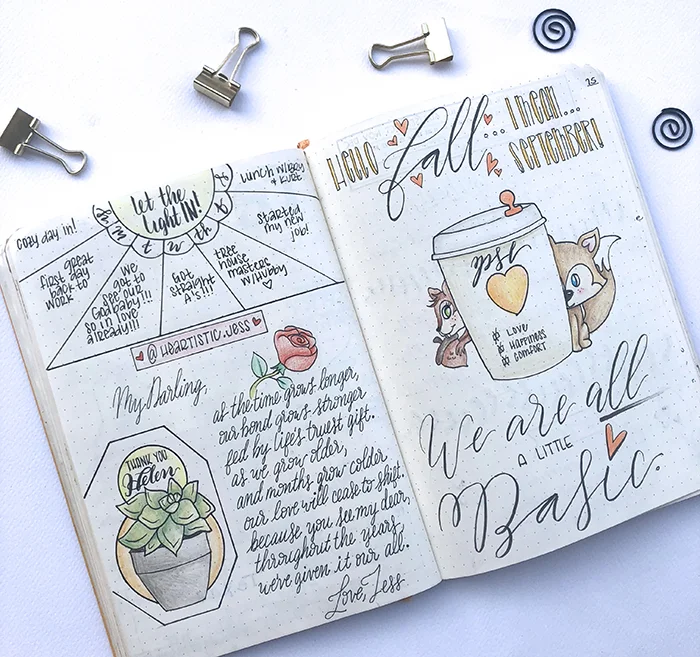 let the
light IN!
S
m
t
w
th
f
S
cozy day in!
first great
day
back to
work
we
got to
see our
Godbaby!!!
so in love
already!!!
Got
straight
A's!!!
tree
house
masters
w/hubby
started
my new
job!
lunch w/Bby
& Kurt
@Heartistic.Jess
My Darling,
as the time grows longer,
our bond grows stronger
fed by life's truest gift.
as we grow older,
and months grow colder
our love will cease to shift.
because you see my dear,
throughout the years,
we've given it our all.
Love, Jess
THANK YOU
Helen
15
Hello fall... I mean...
September!
psl
LOVE
HAPPINESS
COMFORT
We are all
A LITTLE
Basic.